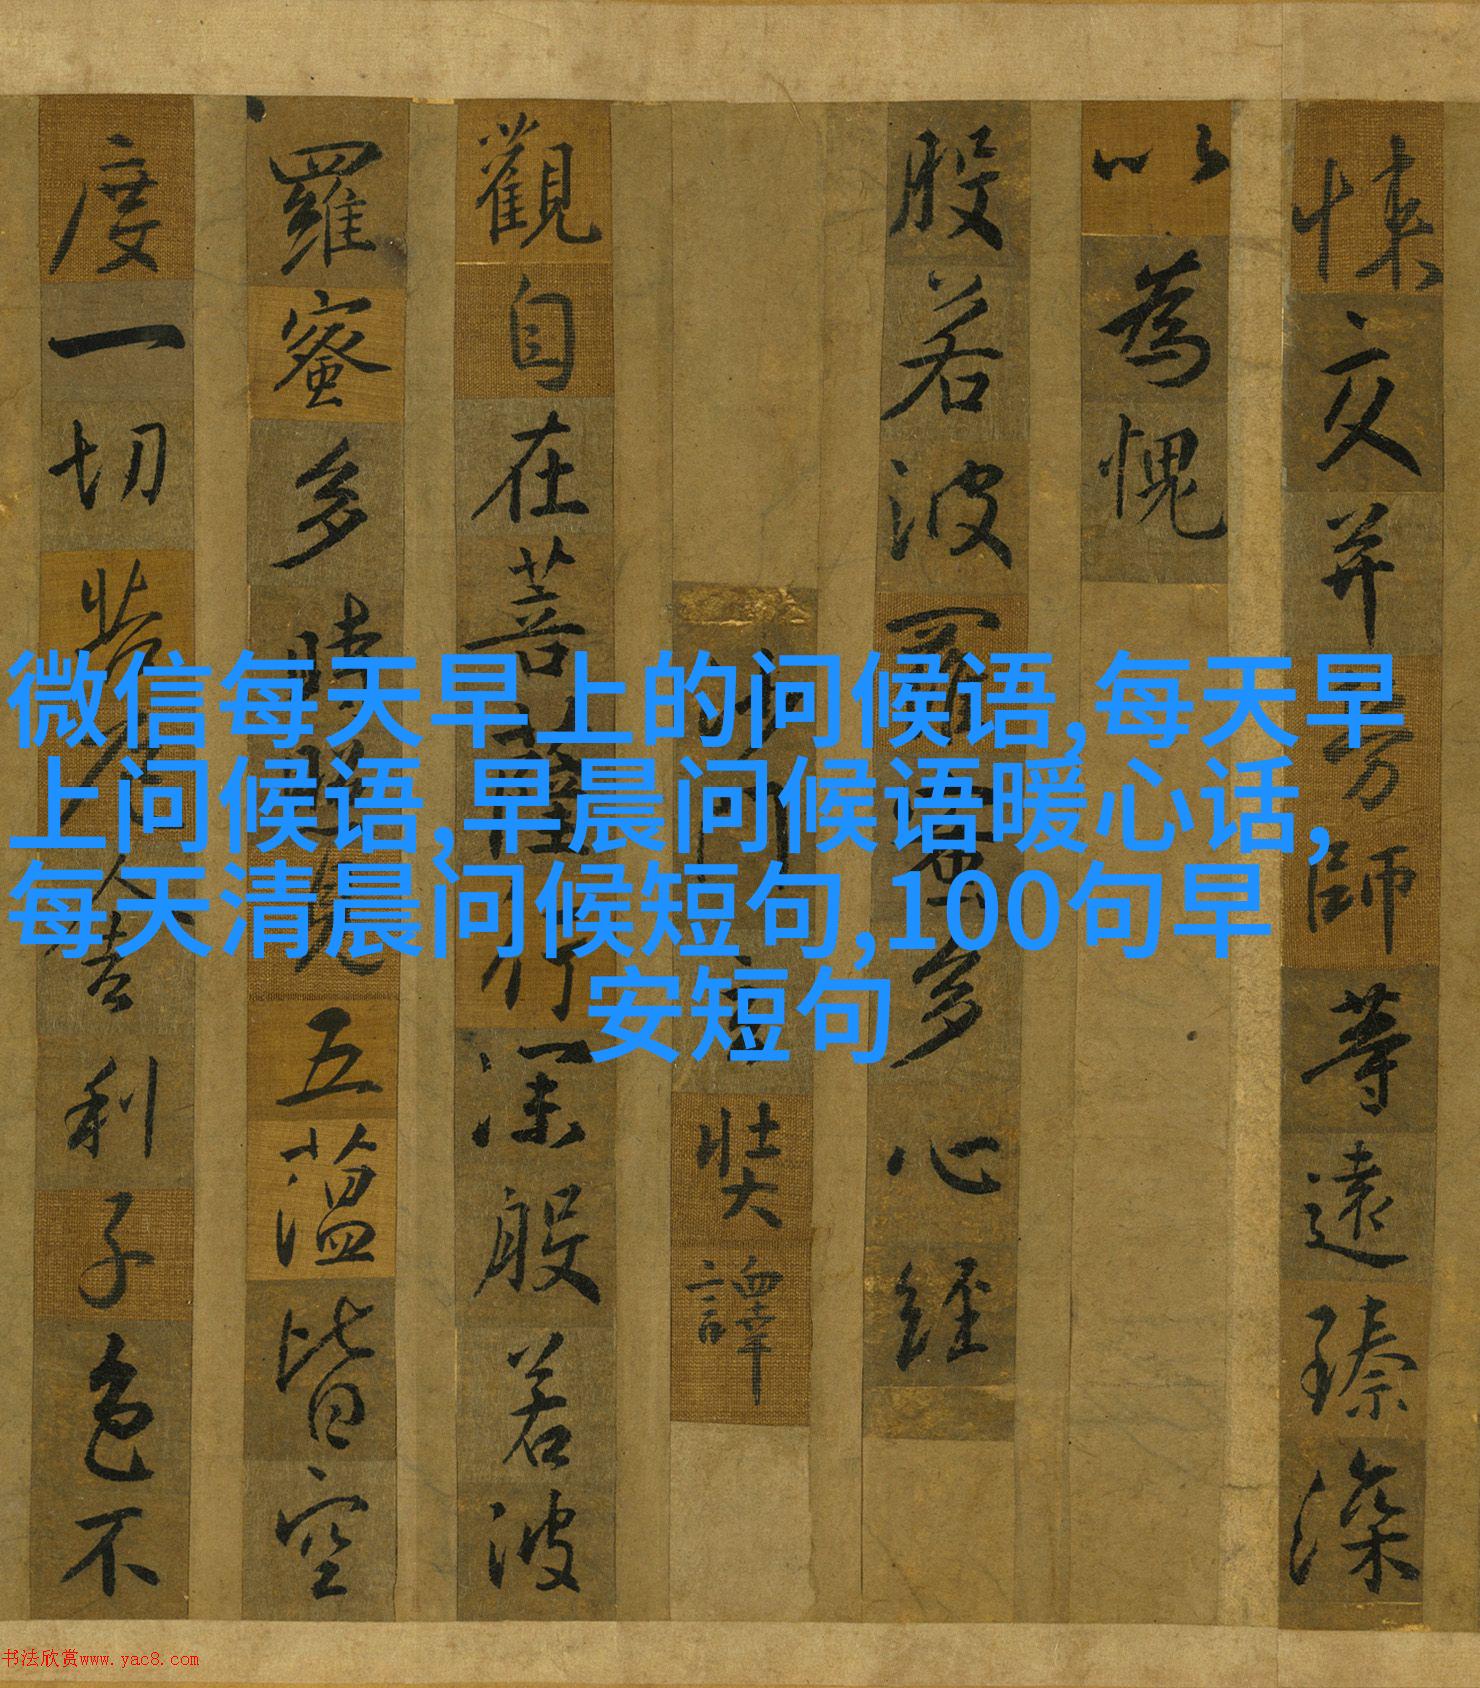 悚交并勞師等遠臻深
以為愧
般若波羅蜜多心經
沙門玄奘譯
觀自在菩薩行深般若波
羅蜜多時照見五蘊皆空
度一切苦厄舍利子色不
微信每天早上的问候语,每天早
上问候语,早晨问候语暖心话,
每天清晨问候短句,100句早
安短句
书法欣赏www.yac8.com